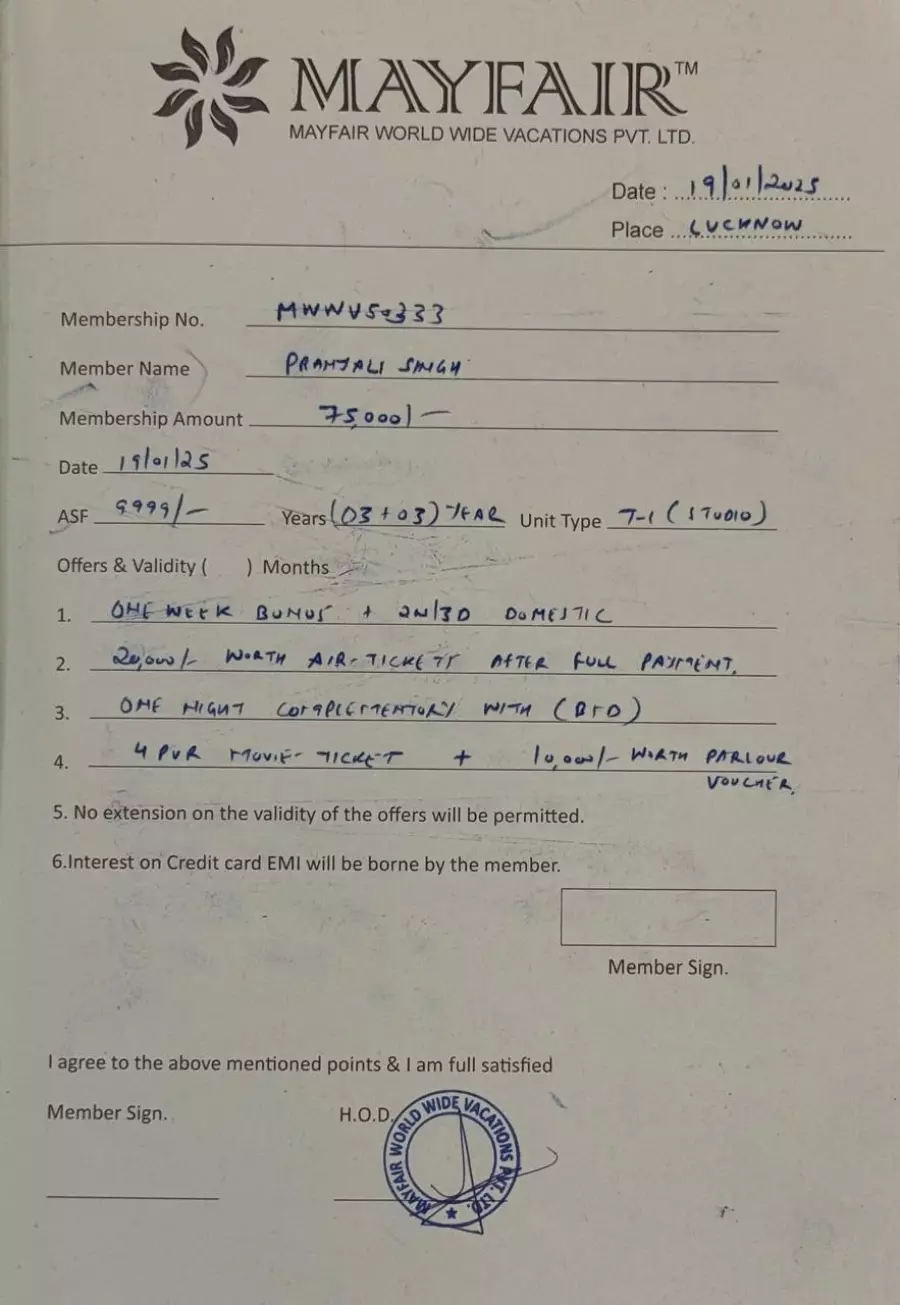 MAYFAIR™
MAYFAIR WORLD WIDE VACATIONS PVT. LTD.
Date : 19/01/2025
Place LUCKNOW
Membership No. MWWV50333
Member Name PRANJALI SINGH
Membership Amount 75,000/-
Date 19/01/25
ASF 9999/- Years (03+03) YEAR Unit Type T-1 (STUDIO)
Offers & Validity ( ) Months
1. ONE WEEK BONUS + 2N/3D DOMESTIC
2. 20,000/- WORTH AIR-TICKETS AFTER FULL PAYMENT.
3. ONE NIGHT COMPLEMENTORY WITH (B+D)
4. 4 PVR MOVIE-TICKET + 10,000/- WORTH PARLOUR
VOUCHER.
5. No extension on the validity of the offers will be permitted.
6.Interest on Credit card EMI will be borne by the member.
Member Sign.
I agree to the above mentioned points & I am full satisfied
Member Sign. H.O.D.
MAYFAIR WORLD WIDE VACATIONS PVT. LTD. ★